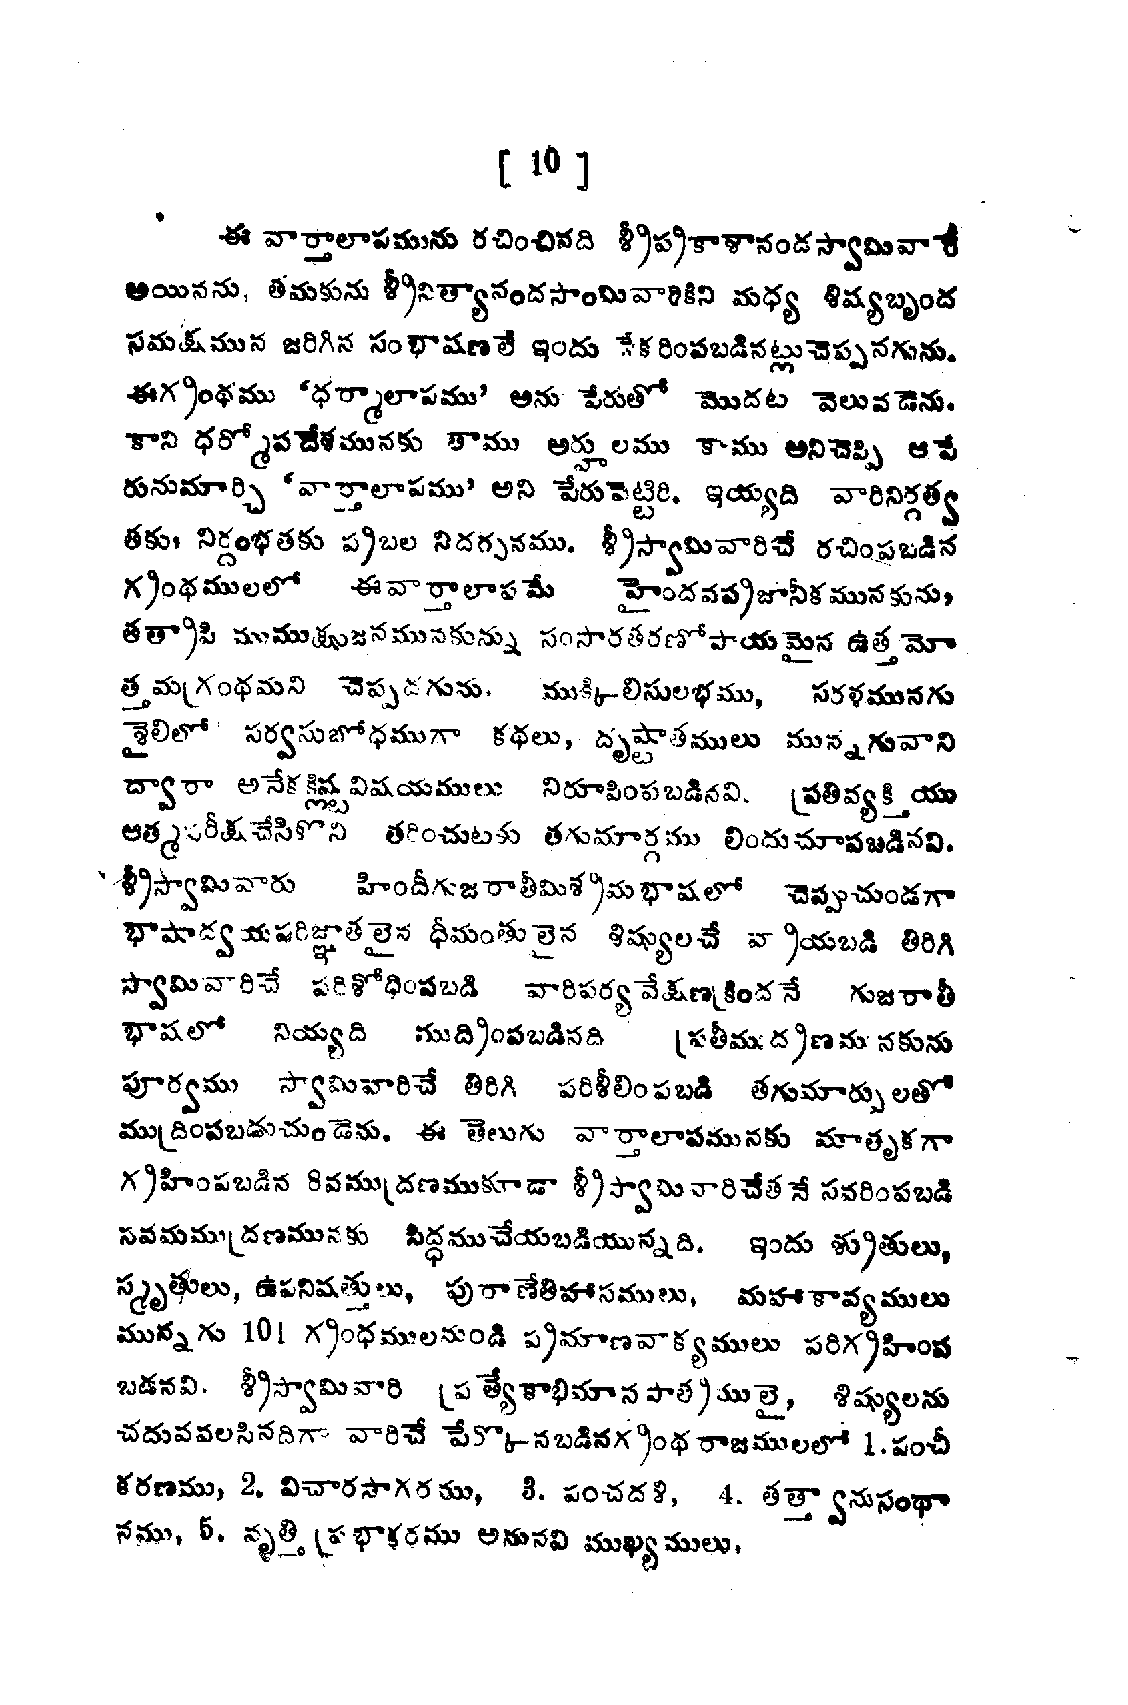 [ 10 ]
ఈ వార్తాలాపమును రచించినది శ్రీప్రకాశానందస్వామివారే
అయినను, తమకును శ్రీనిత్యానందస్వామివారికిని మధ్య శిష్యబృంద
సమక్షమున జరిగిన సంభాషణలే ఇందు సేకరింపబడినట్లుచెప్పనగును.
ఈగ్రంథము ‘ధర్మాలాపము’ అను పేరుతో మొదట వెలువడెను.
కాని ధర్మోపదేశమునకు తాము అర్హులము కాము అనిచెప్పి ఆపే
రునుమార్చి ‘వార్తాలాపము’ అని పేరుపెట్టిరి. ఇయ్యది వారినిర్గత్వ
తకు, నిర్దంభతకు ప్రబల నిదర్శనము. శ్రీస్వామివారిచే రచింపబడిన
గ్రంథములలో ఈవార్తాలాపమే హైందవప్రజానీకమునకును,
తత్రాపి ముముక్షుజనమునకున్ను సంసారతరణోపాయమైన ఉత్తమో
త్తమగ్రంథమని చెప్పదగును. ముక్కిలిసులభము, సరళమునగు
శైలిలో సర్వసుబోధముగా కథలు, దృష్టాతములు మున్నగువాని
ద్వారా అనేకక్లిష్టవిషయములు నిరూపింపబడినవి. ప్రతివ్యక్తియు
ఆత్మపరీక్షచేసికొని తరించుటకు తగుమార్గము లిందుచూపబడినవి.
శ్రీస్వామివారు హిందీగుజరాతీమిశ్రమభాషలో చెప్పుచుండగా
భాషాద్వయపరిజ్ఞాతలైన ధీమంతులైన శిష్యులచే వ్రాయబడి తిరిగి
స్వామివారిచే పరిశోధింపబడి వారిపర్యవేక్షణక్రిందనే గుజరాతీ
భాషలో నియ్యది ముద్రింపబడినది ప్రతీముద్రణమునకును
పూర్వము స్వామివారిచే తిరిగి పరిశీలింపబడి తగుమార్పులతో
ముద్రింపబడుచుండెను. ఈ తెలుగు వార్తాలాపమునకు మాతృకగా
గ్రహింపబడిన 8వముద్రణముకూడా శ్రీస్వామివారిచేతనే సవరింపబడి
నవమముద్రణమునకు సిద్ధముచేయబడియున్నది. ఇందు శ్రుతులు,
స్మృతులు, ఉపనిషత్తులు, పురాణేతిహాసములు, మహాకావ్యములు
మున్నగు 101 గ్రంథములనుండి ప్రమాణవాక్యములు పరిగ్రహింప
బడనవి. శ్రీస్వామివారి ప్రత్యేకాభిమానపాత్రములై, శిష్యులను
చదువవలసినదిగా వారిచే పేర్కొనబడినగ్రంథరాజములలో 1.పంచీ
కరణము, 2. విచారసాగరము, 3. పంచదశి, 4. తత్త్వానుసంధా
నము, 5. వృత్తిప్రభాకరము అనునవి ముఖ్యములు,